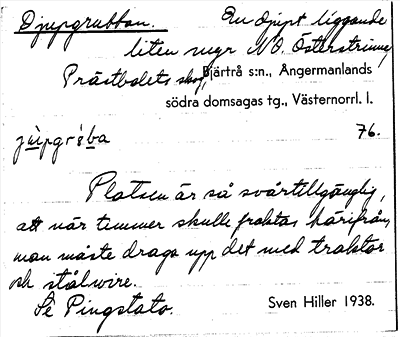 Djupgrubban. En djupt liggande
liten myr N.O. Österstrinne,
Prästbolets skog, Bjärtrå s:n., Ångermanlands
södra domsagas tg., Västernorrl. l.
76.
Platsen är så svårtillgänglig,
att när timmer skulle fraktas härifrån,
man måste draga upp det med traktor
och stålwire.
Se Pingstato.
Sven Hiller 1938.